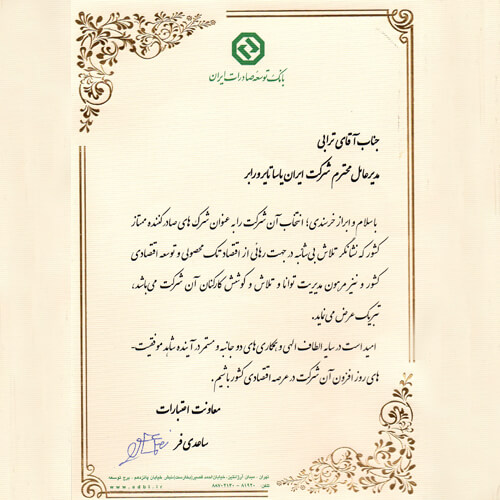 بانک توسعه صادرات ایران
جناب آقای ترابی
مدیرعامل محترم شرکت ایران یاسا تایر و رابر
با سلام و ابراز خرسندی؛ انتخاب آن شرکت را به عنوان شرکت های صادرکننده ممتاز
کشور که نشانگر تلاش بی شائبه در جهت رهائی از اقتصاد تک محصولی و توسعه اقتصادی
کشور و نیز مرهون مدیریت توانا و تلاش و کوشش کارکنان آن شرکت می باشد،
تبریک عرض می نماید.
امید است در سایه الطاف الهی و همکاری های دو جانبه و مستمر در آینده شاهد موفقیت-
های روز افزون آن شرکت در عرصه اقتصادی کشور باشیم.
معاونت اعتبارات
ساعدی فر
تهران - میدان آرژانتین، خیابان احمد قصیر (بخارست) نبش خیابان پانزدهم - برج توسعه
تلفن:
www.edbi.ir